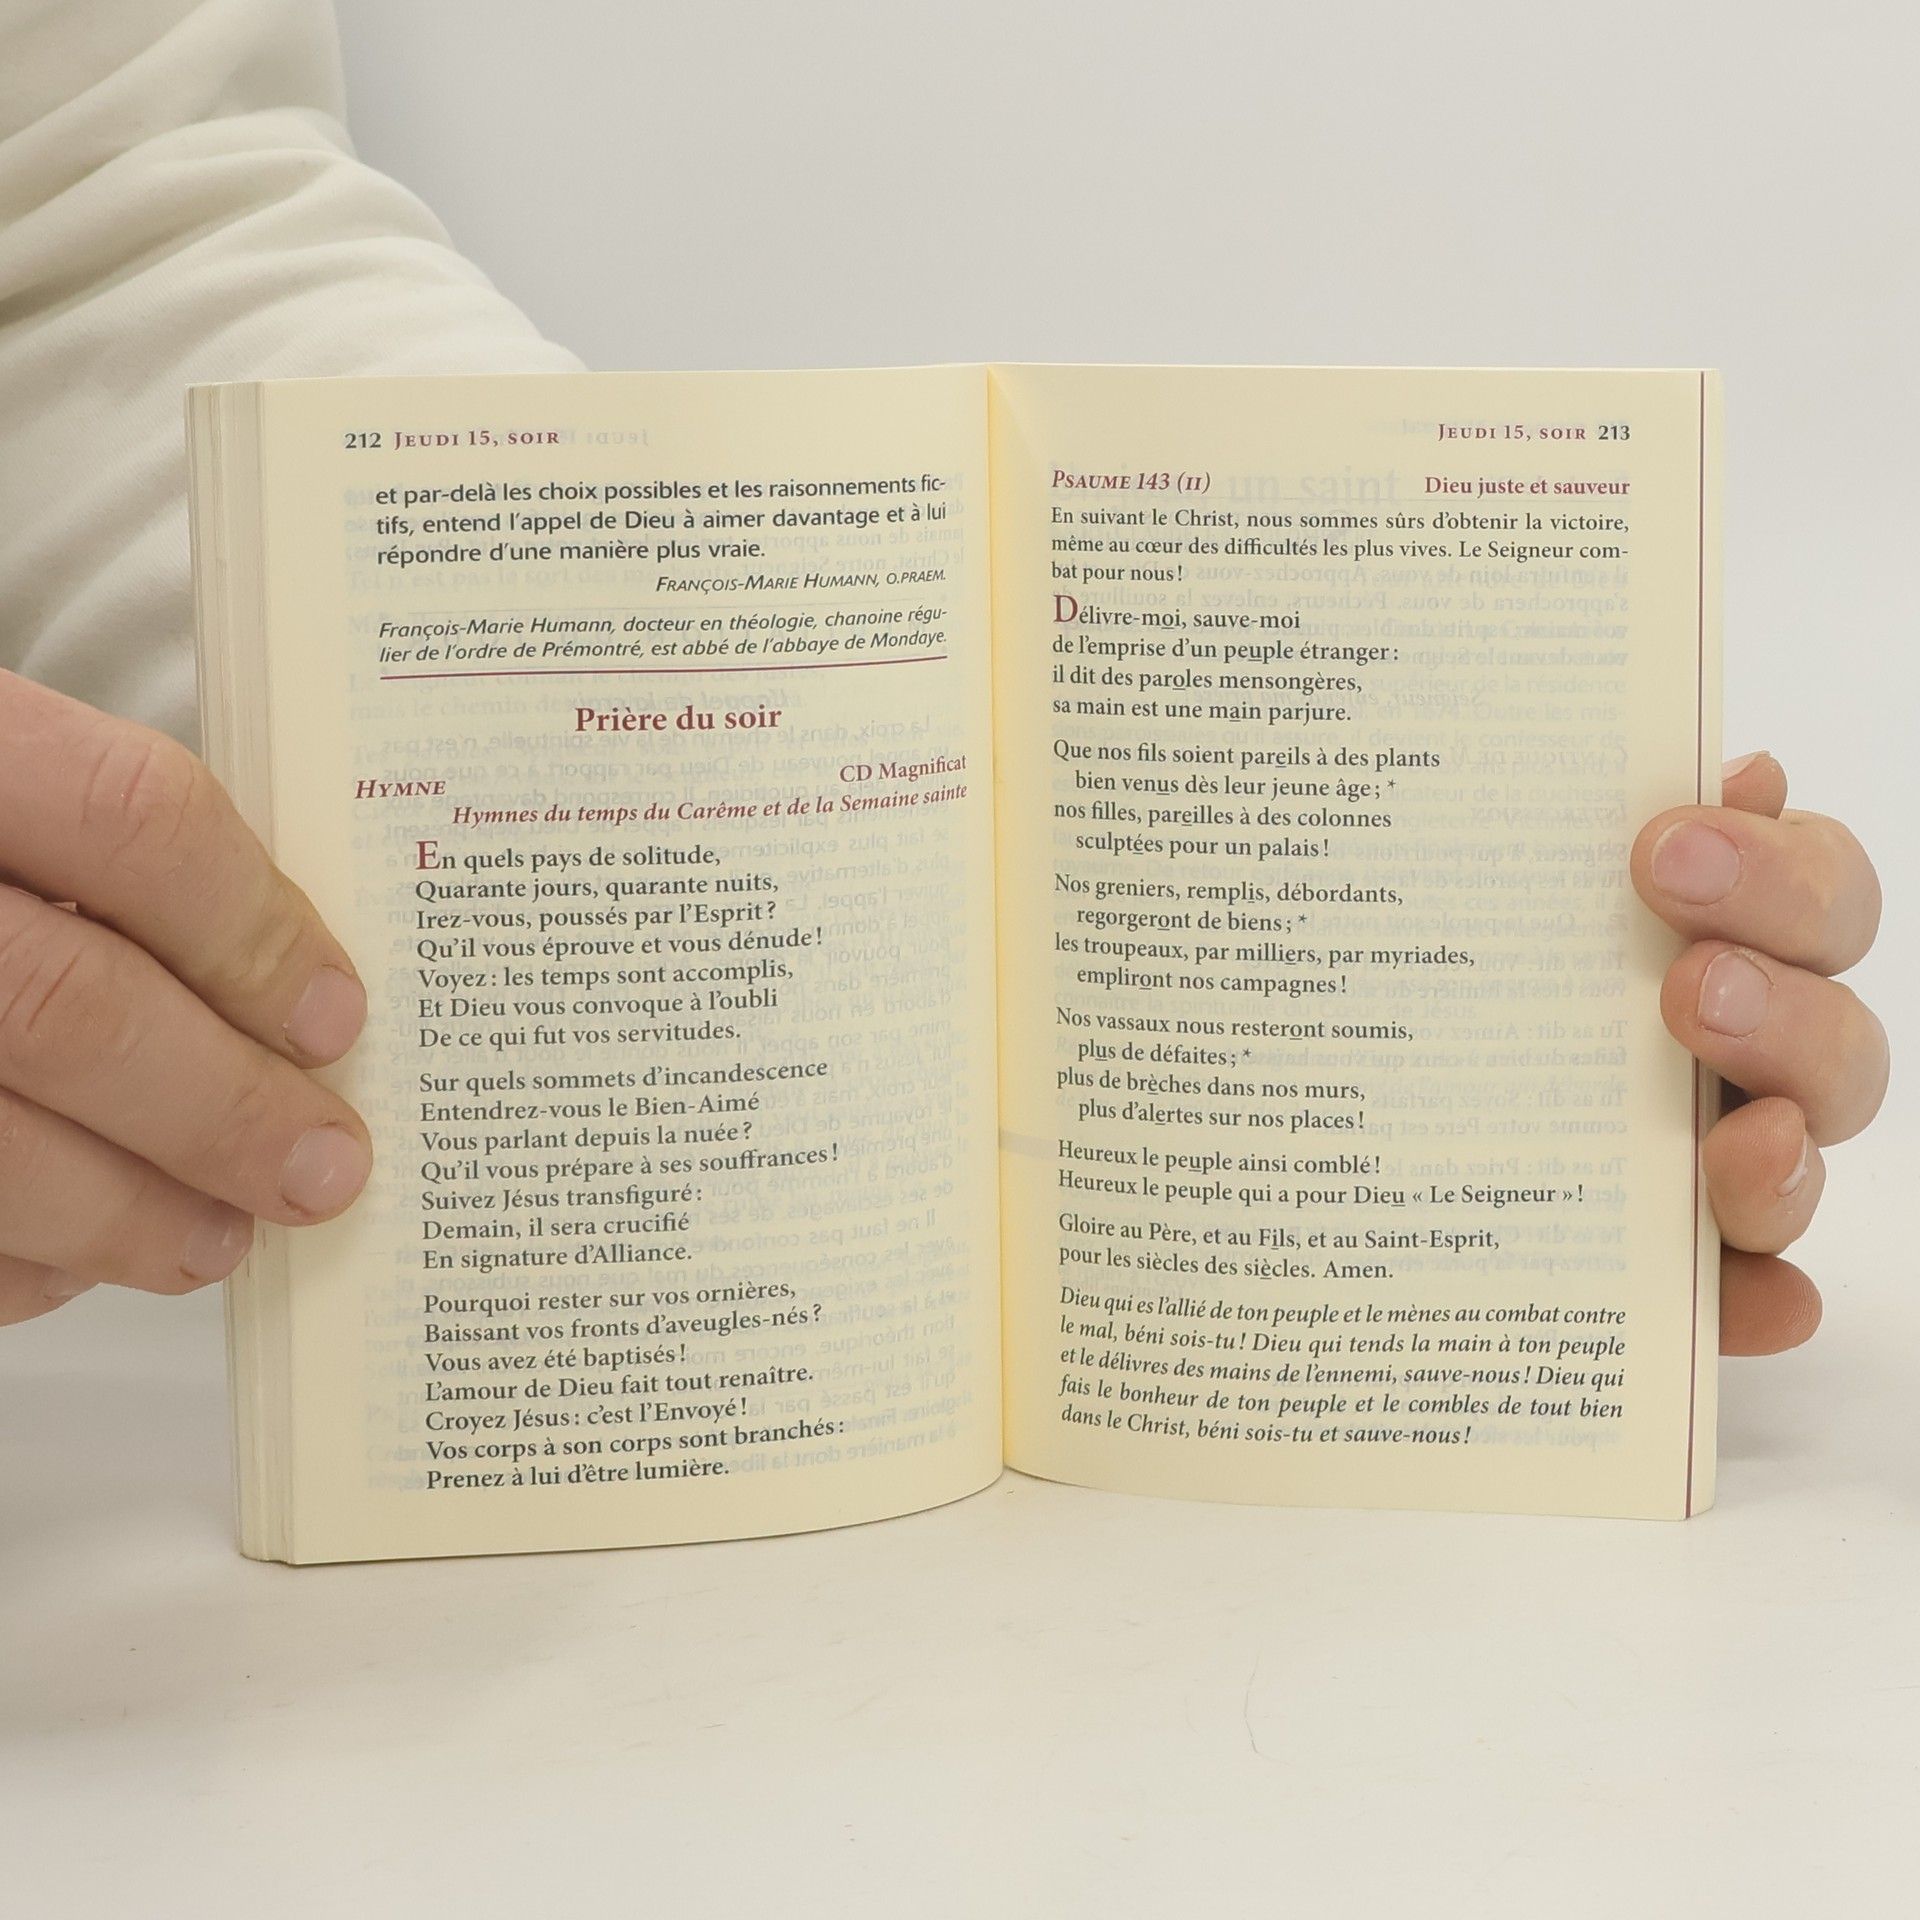 212 JEUDI 15, SOIR
et par-delà les choix possibles et les raisonnements fic-
tifs, entend l'appel de Dieu à aimer davantage et à lui
répondre d'une manière plus vraie.
FRANÇOIS-MARIE HUMANN, O.PRAEM.
François-Marie Humann, docteur en théologie, chanoine régu-
lier de l'ordre de Prémontré, est abbé de l'abbaye de Mondaye.
Prière du soir
HYMNE
CD Magnificat
Hymnes du temps du Carême et de la Semaine sainte
En quels pays de solitude,
Quarante jours, quarante nuits,
Irez-vous, poussés par l'Esprit ?
Qu'il vous éprouve et vous dénude !
Voyez : les temps sont accomplis,
Et Dieu vous convoque à l'oubli
De ce qui fut vos servitudes.
Sur quels sommets d'incandescence
Entendrez-vous le Bien-Aimé
Vous parlant depuis la nuée ?
Qu'il vous prépare à ses souffrances !
Suivez Jésus transfiguré :
Demain, il sera crucifié
En signature d'Alliance.
Pourquoi rester sur vos ornières,
Baissant vos fronts d'aveugles-nés ?
Vous avez été baptisés !
L'amour de Dieu fait tout renaître.
Croyez Jésus : c'est l'Envoyé !
Vos corps à son corps sont branchés :
Prenez à lui d'être lumière.
JEUDI 15, SOIR 213
PSAUME 143 (II) Dieu juste et sauveur
En suivant le Christ, nous sommes sûrs d'obtenir la victoire,
même au cœur des difficultés les plus vives. Le Seigneur com-
bat pour nous !
Délivre-moi, sauve-moi
de l'emprise d'un peuple étranger :
il dit des paroles mensongères,
sa main est une main parjure.
Que nos fils soient pareils à des plants
bien venus dès leur jeune âge ; *
nos filles, pareilles à des colonnes
sculptées pour un palais !
Nos greniers, remplis, débordants,
regorgeront de biens ; *
les troupeaux, par milliers, par myriades,
empliront nos campagnes !
Nos vassaux nous resteront soumis,
plus de défaites ; *
plus de brèches dans nos murs,
plus d'alertes sur nos places !
Heureux le peuple ainsi comblé !
Heureux le peuple qui a pour Dieu « Le Seigneur » !
Gloire au Père, et au Fils, et au Saint-Esprit,
pour les siècles des siècles. Amen.
Dieu qui es l'allié de ton peuple et le mènes au combat contre
le mal, béni sois-tu ! Dieu qui tends la main à ton peuple
et le délivres des mains de l'ennemi, sauve-nous ! Dieu qui
fais le bonheur de ton peuple et le combles de tout bien
dans le Christ, béni sois-tu et sauve-nous !